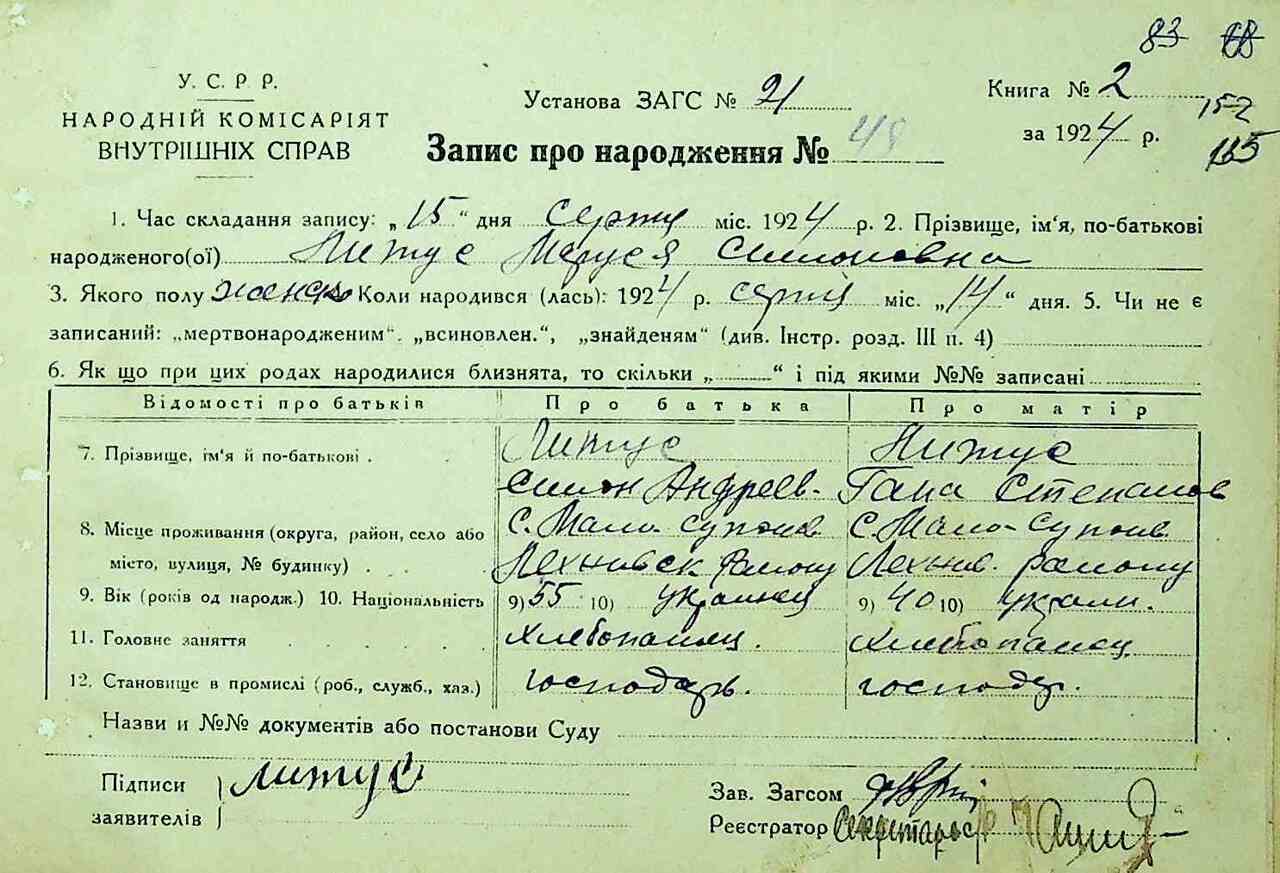 83 68
У. С. Р. Р.
НАРОДНІЙ КОМІСАРІЯТ
ВНУТРІШНІХ СПРАВ
Установа ЗАГС № 21
Книга № 2
152
за 1924 р.
165
Запис про народження № 48
1. Час складання запису: „15“ дня серпня міс. 1924 р. 2. Прізвище, ім‘я, по-батькові
народженого(ої) Литус Маруся Симоновна
3. Якого полу жіноч Коли народився (лась): 1924 р. серпня міс. „14“ дня. 5. Чи не є
записаний: „мертвонародженим“. „всиновлен.“, „знайденям“ (див. Інстр. розд. III п. 4)
6. Як що при цих родах народилися близнята, то скільки „ “ і під якими №№ записані
Відомості про батьків Про батька Про матір
7. Прізвище, ім‘я й по-батькові . Литус Литус
Симон Андреев. Гапа Степанов
8. Місце проживання (округа, район, село або С. Мало Супоив С. Мало-Супоив.
місто, вулиця, № будинку) . . Яехнивск району Яехнив. району
9. Вік (років од народж.) 10. Національність 9) 55 10) українец 9) 40 10) украли.
11. Головне заняття хлебопашец. хлебопашец
12. Становище в промислі (роб., служб., хаз.) господарь. господар.
Назви и №№ документів або постанови Суду
Підписи
заявителів
Литус
Зав. Загсом
Реєстратор Секретарь